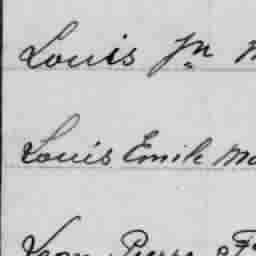 Louis Jn
Louis Emile
Leon Pierre